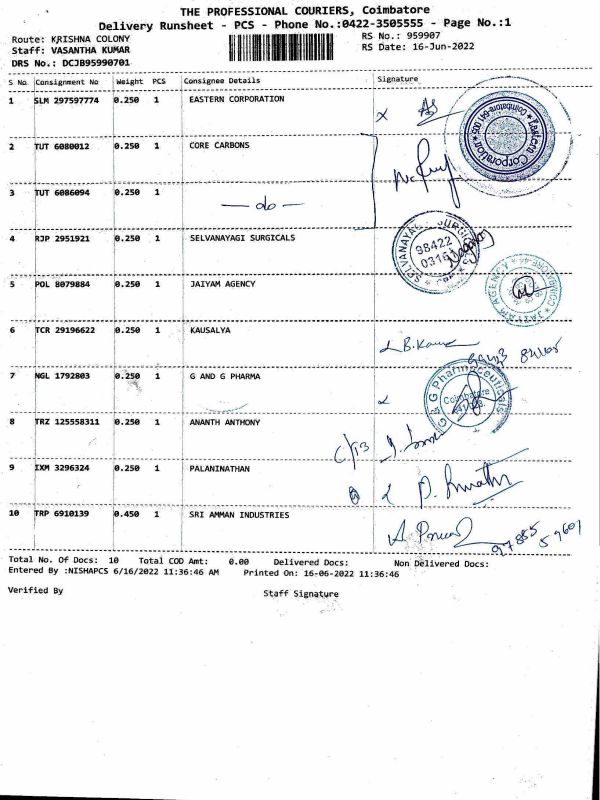 THE PROFESSIONAL COURIERS, Coimbatore
Delivery Runsheet - PCS - Phone No.:0422-3505555 - Page No.:1
Route: KRISHNA COLONY RS No.: 959907
Staff: VASANTHA KUMAR RS Date: 16-Jun-2022
DRS No.: DCJB95990701
S No. Consignment No Weight PCS Consignee Details Signature
1 SLM 297597774 0.250 1 EASTERN CORPORATION
Eastern Corporation
2 TUT 6080012 0.250 1 CORE CARBONS
3 TUT 6086094 0.250 1 — do —
4 RJP 2951921 0.250 1 SELVANAYAGI SURGICALS
98422
5 POL 8079884 0.250 1 JAIYAM AGENCY
JAIYAM AGENCY
6 TCR 29196622 0.250 1 KAUSALYA
7 NGL 1792803 0.250 1 G AND G PHARMA
G & G Pharmaceuticals
Coimbatore
8 TRZ 125558311 0.250 1 ANANTH ANTHONY
9 IXM 3296324 0.250 1 PALANINATHAN
10 TRP 6910139 0.450 1 SRI AMMAN INDUSTRIES
Total No. Of Docs: 10 Total COD Amt: 0.00 Delivered Docs: Non Delivered Docs:
Entered By :NISHAPCS 6/16/2022 11:36:46 AM Printed On: 16-06-2022 11:36:46
Verified By Staff Signature